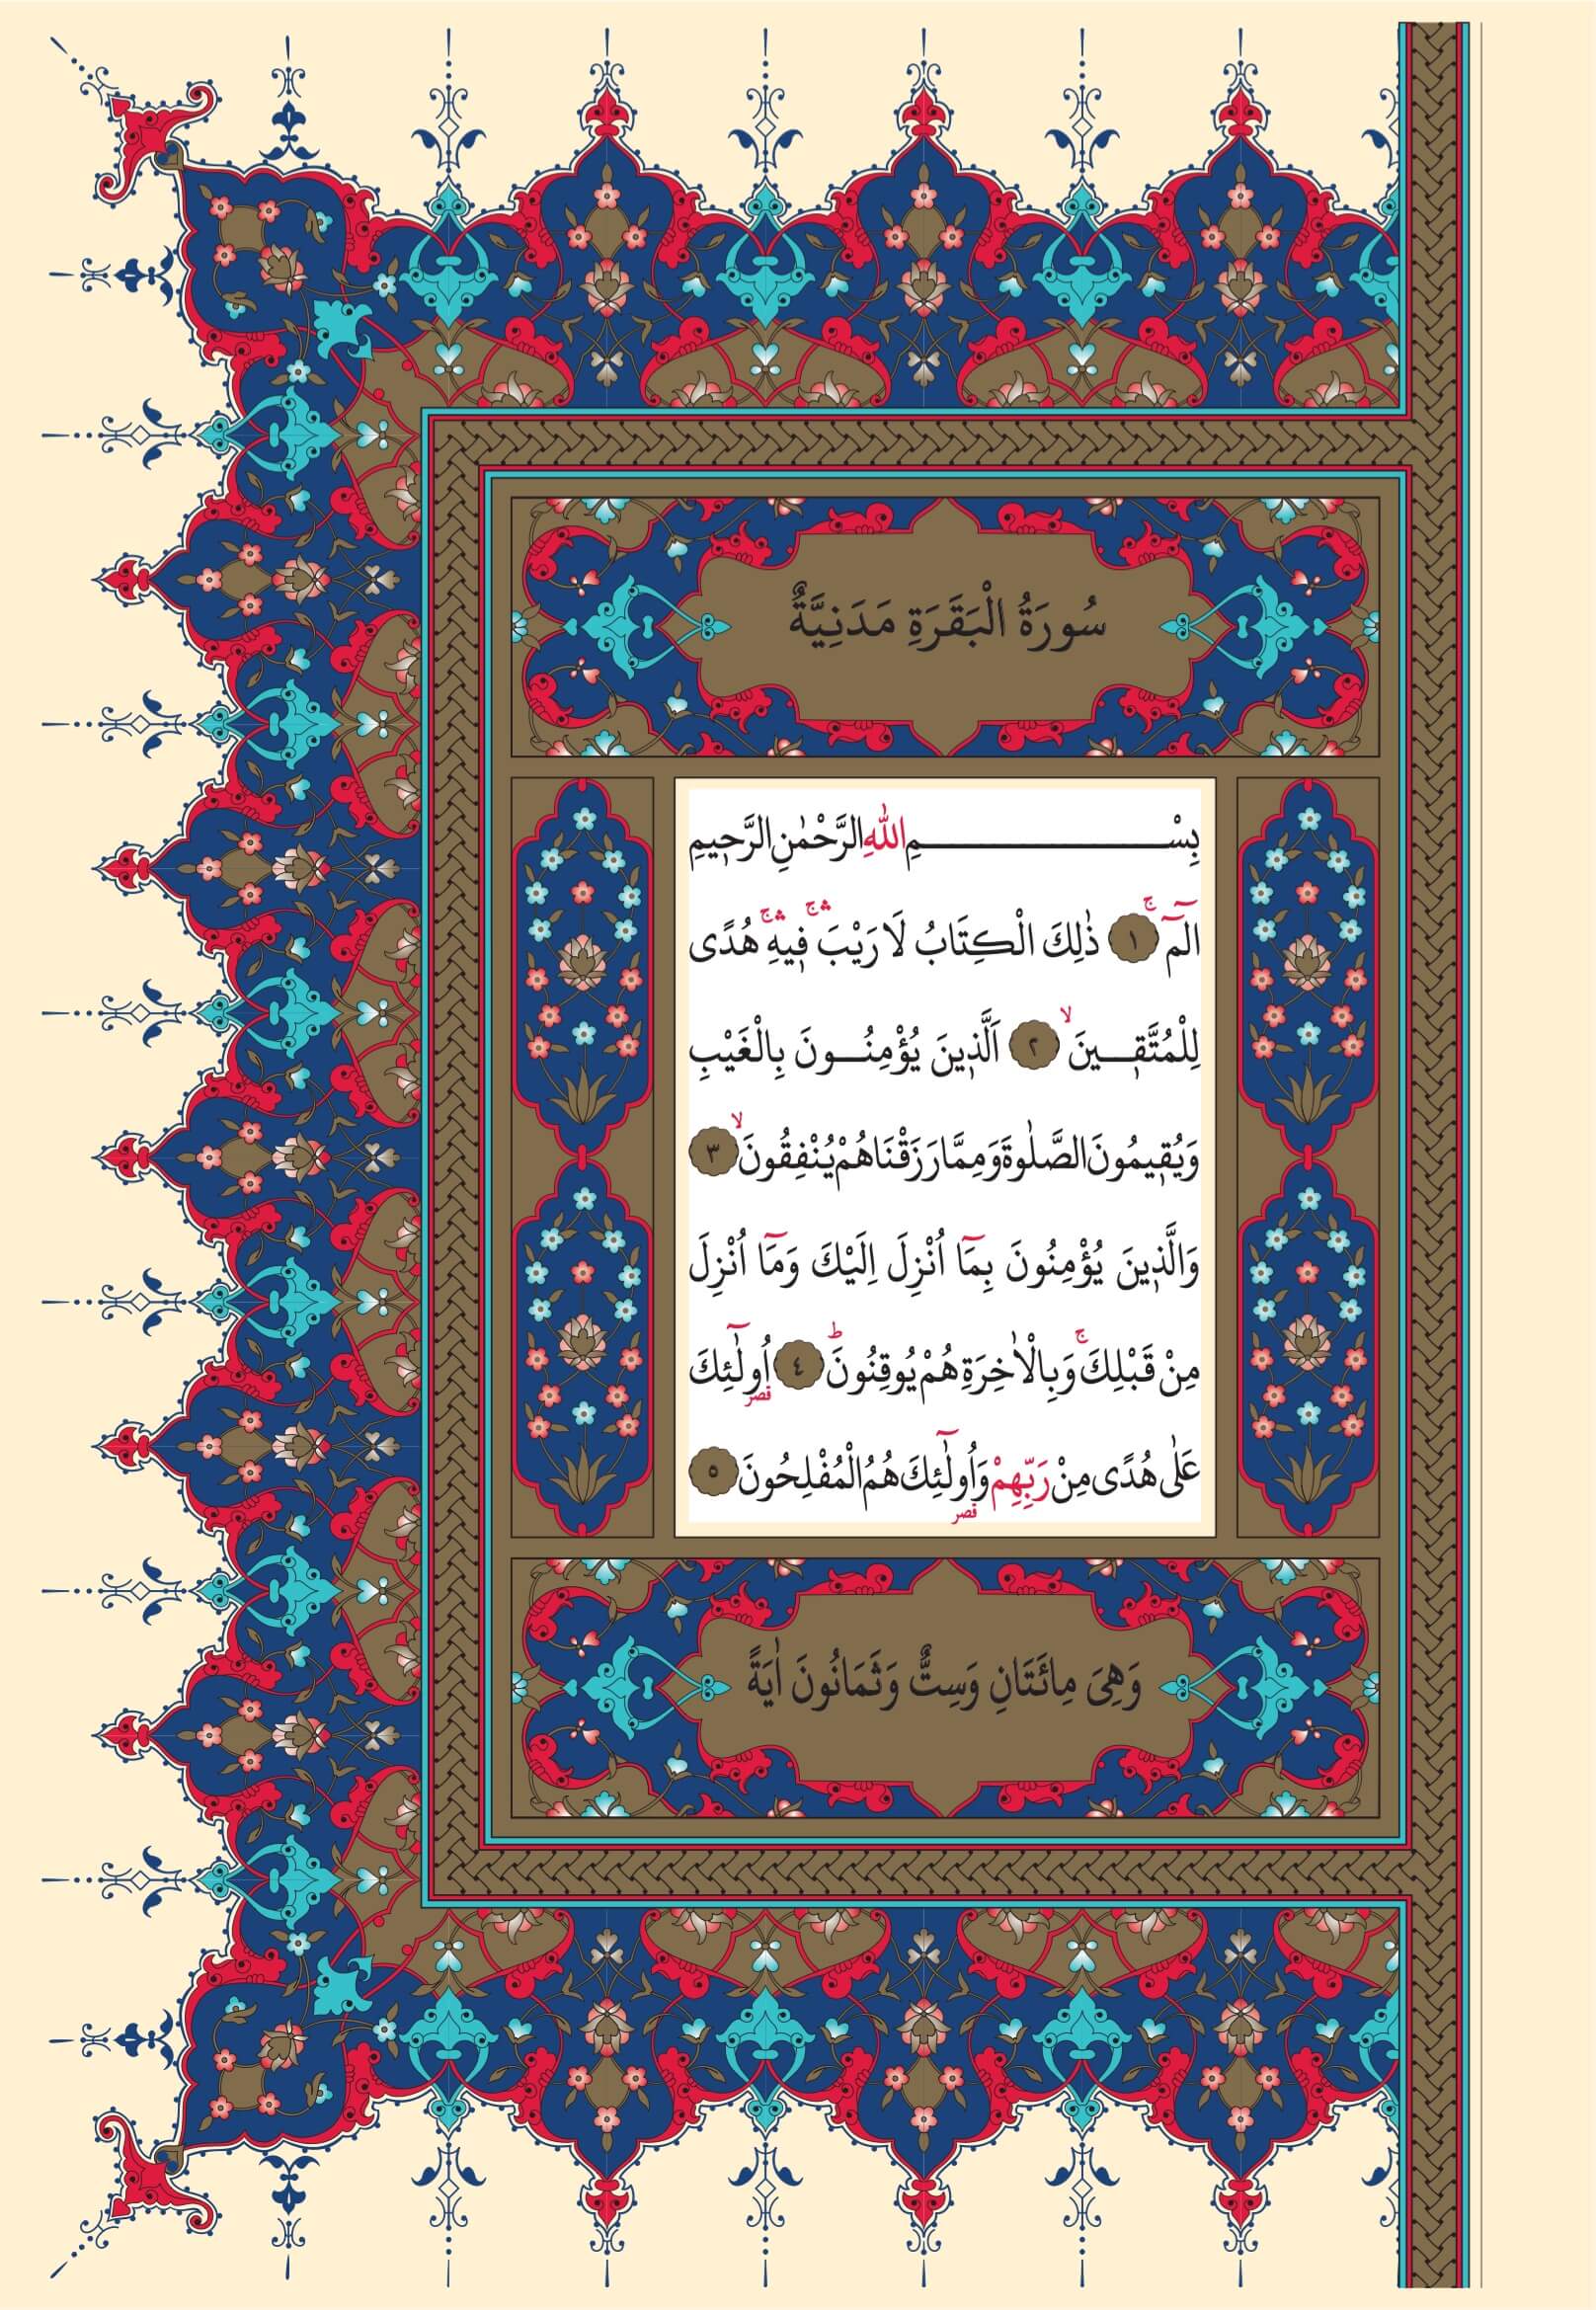 سُورَةُ الْبَقَرَةِ مَدَنِيَّةٌ
بِسْــــــــــــــــــمِ اللّٰهِ الرَّحْمٰنِ الرَّحٖيمِ
الٓمٓ ۚ ﴿١﴾ ذٰلِكَ الْكِتَابُ لَا رَيْبَ ۛۚ فٖيهِ ۛۚ هُدًى
لِلْمُتَّقٖـــينَ ۙ ﴿٢﴾ اَلَّذٖينَ يُؤْمِنُـــونَ بِالْغَيْبِ
وَيُقٖيمُونَ الصَّلٰوةَ وَمِمَّا رَزَقْنَاهُمْ يُنْفِقُونَ ۙ ﴿٣﴾
وَالَّذٖينَ يُؤْمِنُونَ بِمَٓا اُنْزِلَ اِلَيْكَ وَمَٓا اُنْزِلَ
مِنْ قَبْلِكَ ۚ وَبِالْاٰخِرَةِ هُمْ يُوقِنُونَ ؕ ﴿٤﴾ اُو۬لٰٓئِكَ
قصر
عَلٰى هُدًى مِنْ رَبِّهِمْ وَاُو۬لٰٓئِكَ هُمُ الْمُفْلِحُونَ ﴿٥﴾
قصر
وَهِىَ مِائَتَانِ وَسِتٌّ وَثَمَانُونَ اٰيَةً